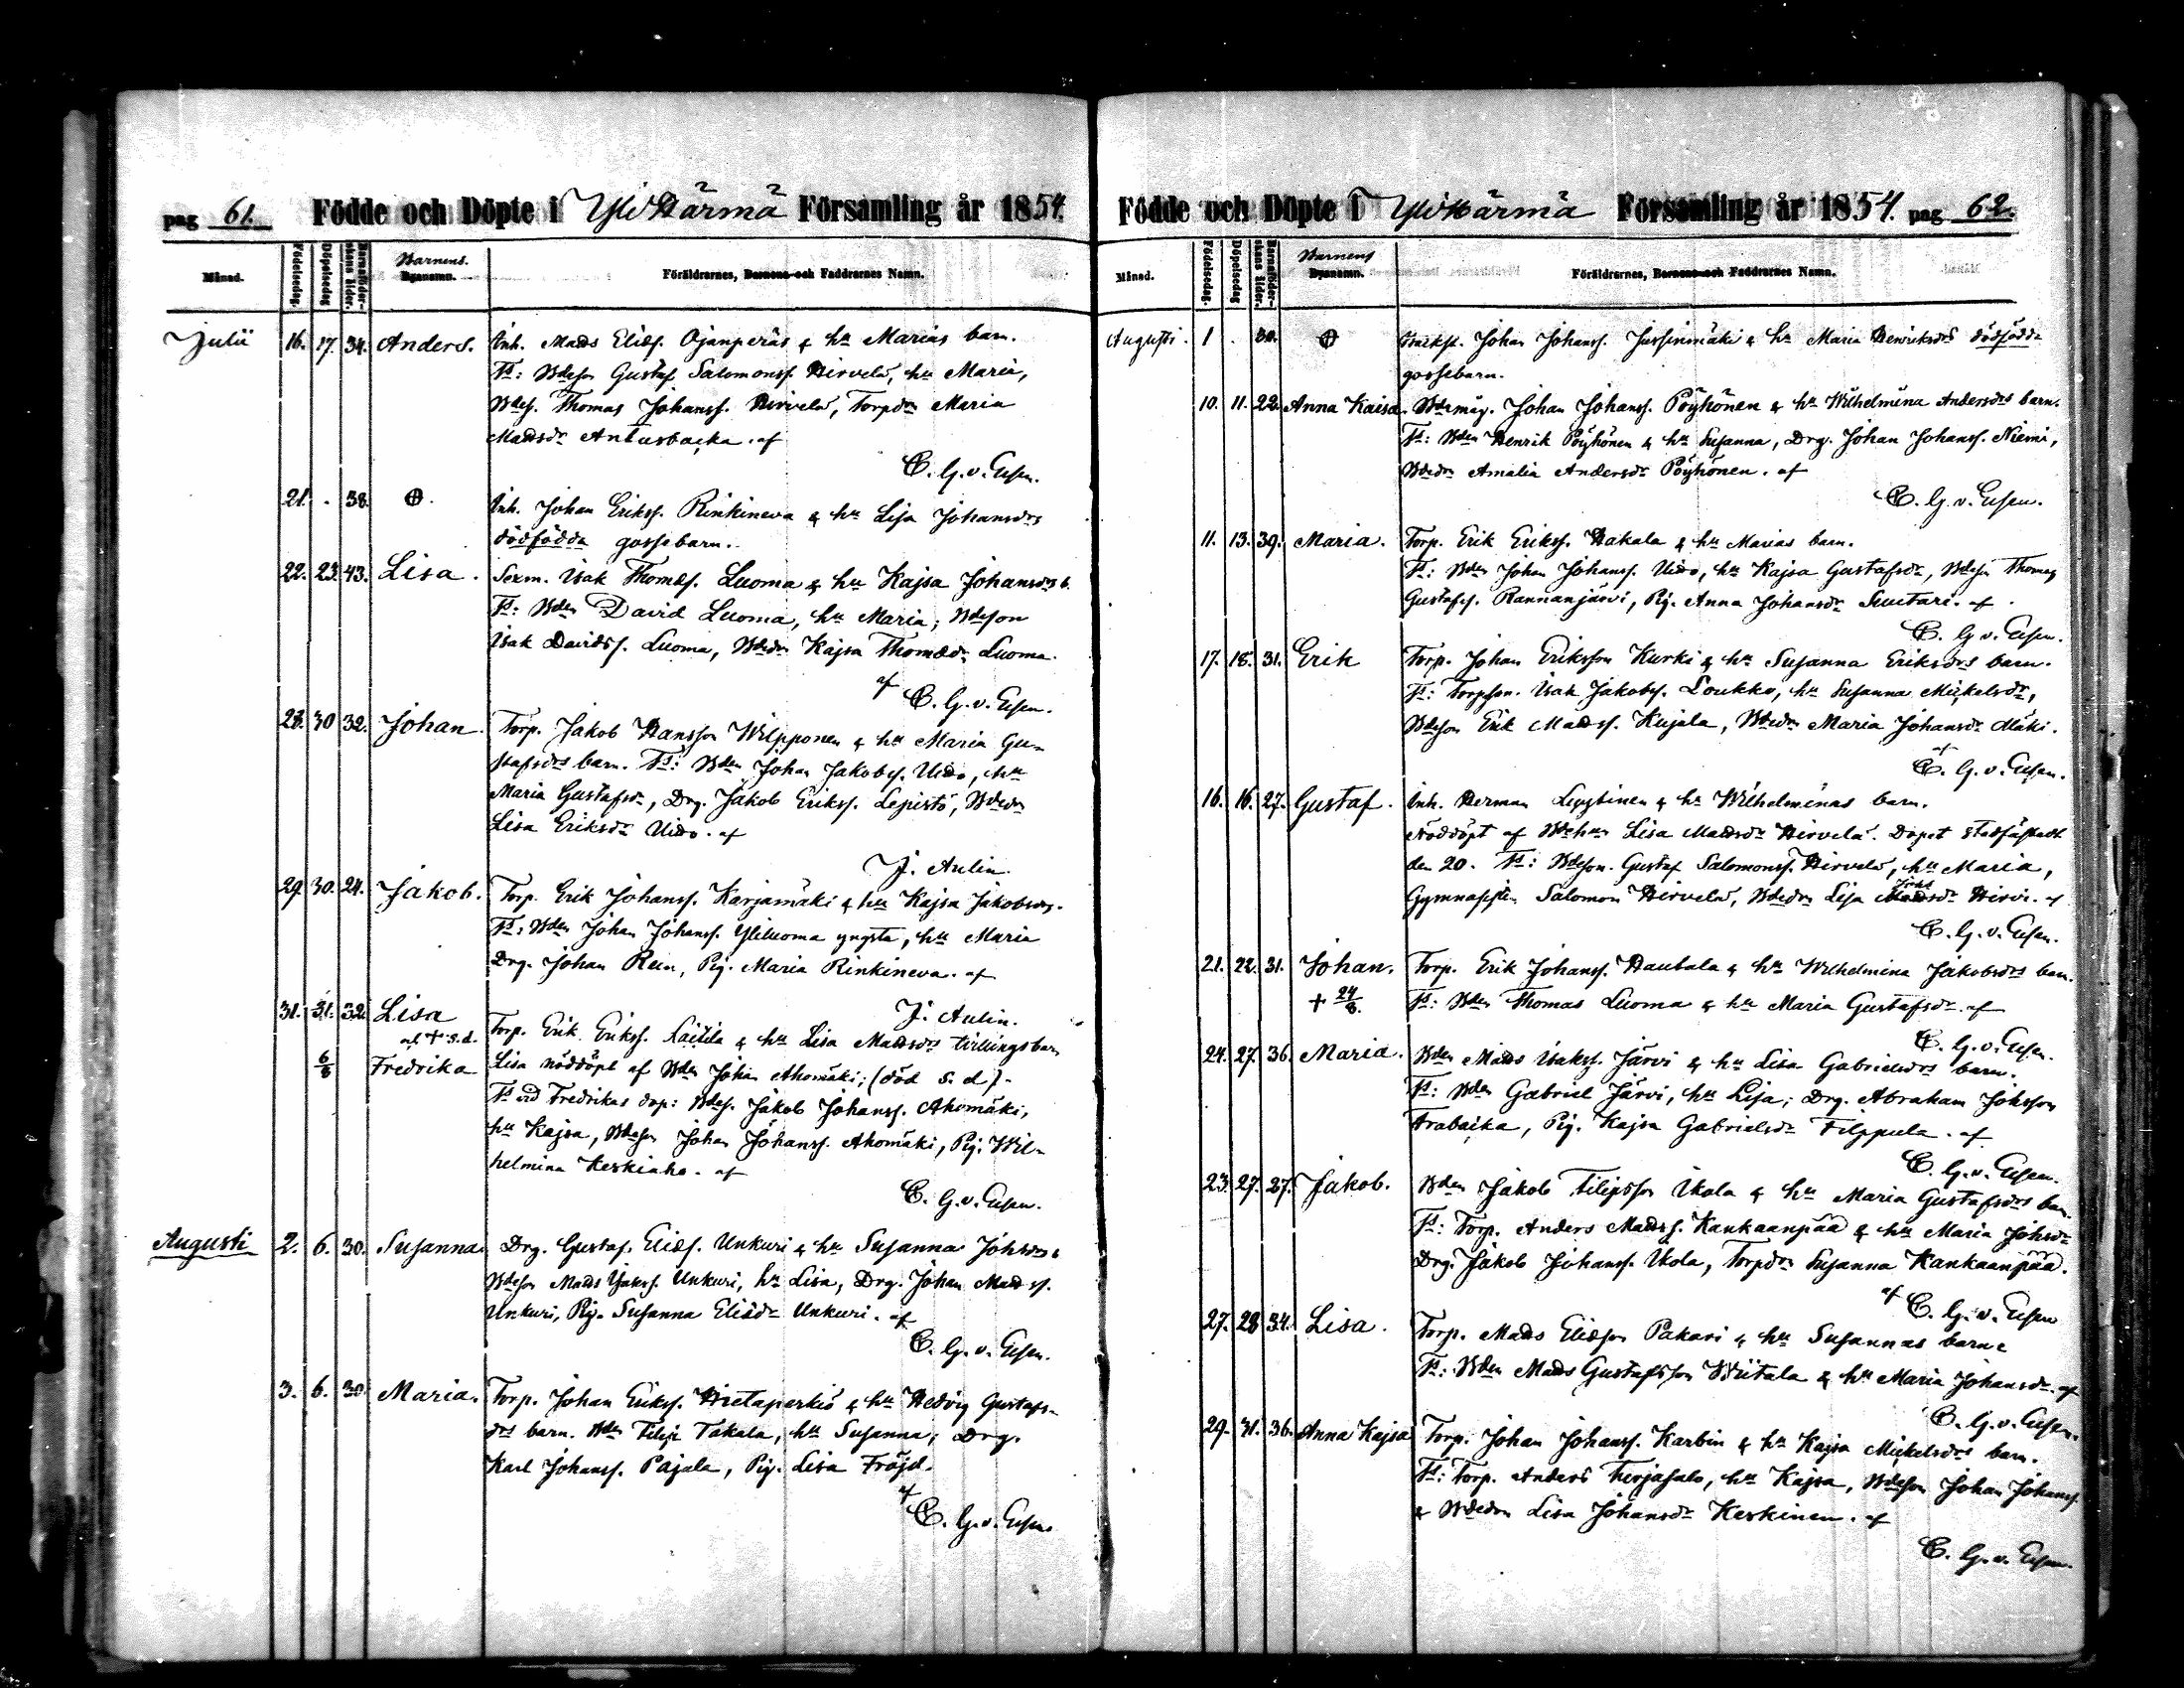 pag 61. Födde och Döpte i YliHärmä Församling år 1854.
Månad. Födelsedag. Döpelsedag Barnaföderskans ålder. Barnens Byanamn. Föräldrarnes, Barnens och Faddrarnes Namn.
Julii 16. 17. 34. Anders. Inh. Mads Eliæs. Ojanperäs & hu Marias barn.
Fs: Bdeson Gustaf Salomonss. Hirvelä, hu Maria,
Bdes. Thomas Johanss. Hirvelä, Torpdr Maria
Madsdr Antusbacka. af
C. G. v. Essen.
21. . 38. Inh. Johan Erikss. Rinkineva & hu Lisa Johansdrs
dödfödda gossebarn.
22. 23. 43. Lisa. Sexm. Isak Thomæs. Luoma & hu Kajsa Johansdrs b.
Fs: Bden David Luoma, hu Maria; Bdeson
Isak Davidss. Luoma, Bdedr Kajsa Thomædr Luoma.
af C. G. v. Essen.
28. 30 32. Johan. Torp. Jakob Hansson Wilpponen & hu Maria Gu-
stafsdrs barn. Fs: Bden Johan Jakobss. Uido, hu
Maria Gustafsdr, Drg. Jakob Erikss. Lepistö, Bdedr
Lisa Eriksdr Uido. af
J. Aulin.
29. 30. 24. Jakob. Torp. Erik Johanss. Karjamäki & hu Kajsa Jakobsdrs.
Fs: Bden Johan Johanss. Yliluoma yngsta, hu Maria
Drg. Johan Rein, Pig. Maria Rinkineva. af
J. Aulin.
31. 31. 32. Lisa Torp. Erik Erikss. Laitila & hu Lisa Madsdrs tvillingsbarn
† s. d.
6/8 Fredrika Lisa nöddöpt af Bden Johan Ahomäki; (död s. d.).
Fs vid Fredrikas dop: Bdes. Jakob Johanss. Ahomäki,
hu Kajsa, Bdeson Johan Johanss. Ahomäki, Pig. Wil-
helmina Keskiaho. af
C. G. v. Essen.
Augusti 2. 6. 30. Susanna. Drg. Gustaf Eliæs. Unkuri & hu Susanna Johsdrs
Bdeson Mads Isakss. Unkuri, hu Lisa, Drg. Johan Madss.
Unkuri, Pig. Susanna Eliædr Unkuri. af
C. G. v. Essen.
3. 6. 30. Maria. Torp. Johan Erikss. Hietaperkiö & hu Hedvig Gustafs-
drs barn. Bden Filip Takala, hu Susanna; Drg.
Karl Johanss. Pajala, Pig. Lisa Fröjd.
af C. G. v. Essen.
Födde och Döpte i YliHärmä Församling år 1854. pag 62.
Månad. Födelsedag. Döpelsedag Barnaföderskans ålder. Barnens Byanamn. Föräldrarnes, Barnens och Faddrarnes Namn.
Augusti. 1 . 30. Johan Johanss. Jussinmäki & hu Maria Henriksdrs dödfödda
gossebarn.
10. 11. 22. Anna Kaisa. Bdemåg. Johan Johanss. Pöyhönen & hu Wilhelmina Andersdrs barn.
Fs: Bden Henrik Pöyhönen & hu Susanna, Drg. Johan Johanss. Niemi,
Bdedr Amalia Andersdr Pöyhönen. af
C. G. v. Essen.
11. 13. 39. Maria. Torp. Erik Erikss. Hakala & hu Marias barn.
Fs: Bden Johan Johanss. Uido, hu Kajsa Gustafsdr, Bdeson Thomas
Gustafss. Rannanjärvi, Pig. Anna Johansdr Suutari. af
C. G. v. Essen.
17. 18. 31. Erik Torp. Johan Eriksson Kurki & hu Susanna Eriksdrs barn.
Fs: Torpson. Isak Jakobss. Loukko, hu Susanna Mickelsdr,
Bdeson Erik Madss. Kujala, Bdedr Maria Johansdr Mäki.
af C. G. v. Essen.
16. 16. 27. Gustaf. Inh. Herman Leppinen & hu Wilhelminas barn.
Nöddöpt af Bdehu Lisa Madsdr Hirvelä. Dopet stadfästadt
den 20. Fs: Bdeson. Gustaf Salomonss. Hirvelä, hu Maria,
Gymnasisten Salomon Hirvelä, Bdedr Lisa Madsdr Hirvi. af
C. G. v. Essen.
21. 22. 31. Johan. Torp. Erik Johanss. Hautala & hu Wilhelmina Jakobsdrs barn.
† 24/8. Fs: Bden Thomas Luoma & hu Maria Gustafsdr. af
C. G. v. Essen.
24. 27. 36. Maria. Bden Mads Isakss. Järvi & hu Lisa Gabrielsdrs barn.
Fs: Bden Gabriel Järvi, hu Lisa; Drg. Abraham Johsson
Frabacka, Pig. Kajsa Gabrielsdr Filppula. af
C. G. v. Essen.
23. 27. 27. Jakob. Bden Jakob Filipsson Ikola & hu Maria Gustafsdrs barn.
Fs: Torp. Anders Madss. Kankaanpää & hu Maria Johsdr
Drg. Jakob Johanss. Ikola, Torpdr Susanna Kankaanpää.
af C. G. v. Essen
27. 28 34. Lisa. Torp. Mads Eliæson Pakari & hu Susannas barn.
Fs: Bden Mads Gustafsson Wiitala & hu Maria Johansdr. af
C. G. v. Essen.
29. 31. 36. Anna Kajsa Torp. Johan Johanss. Karbin & hu Kajsa Mickelsdrs barn.
Fs: Torp. Anders Terjasalo, hu Kajsa, Bdeson Johan Johanss.
& Bdedr Lisa Johansdr Keskinen. af
C. G. v. Essen.